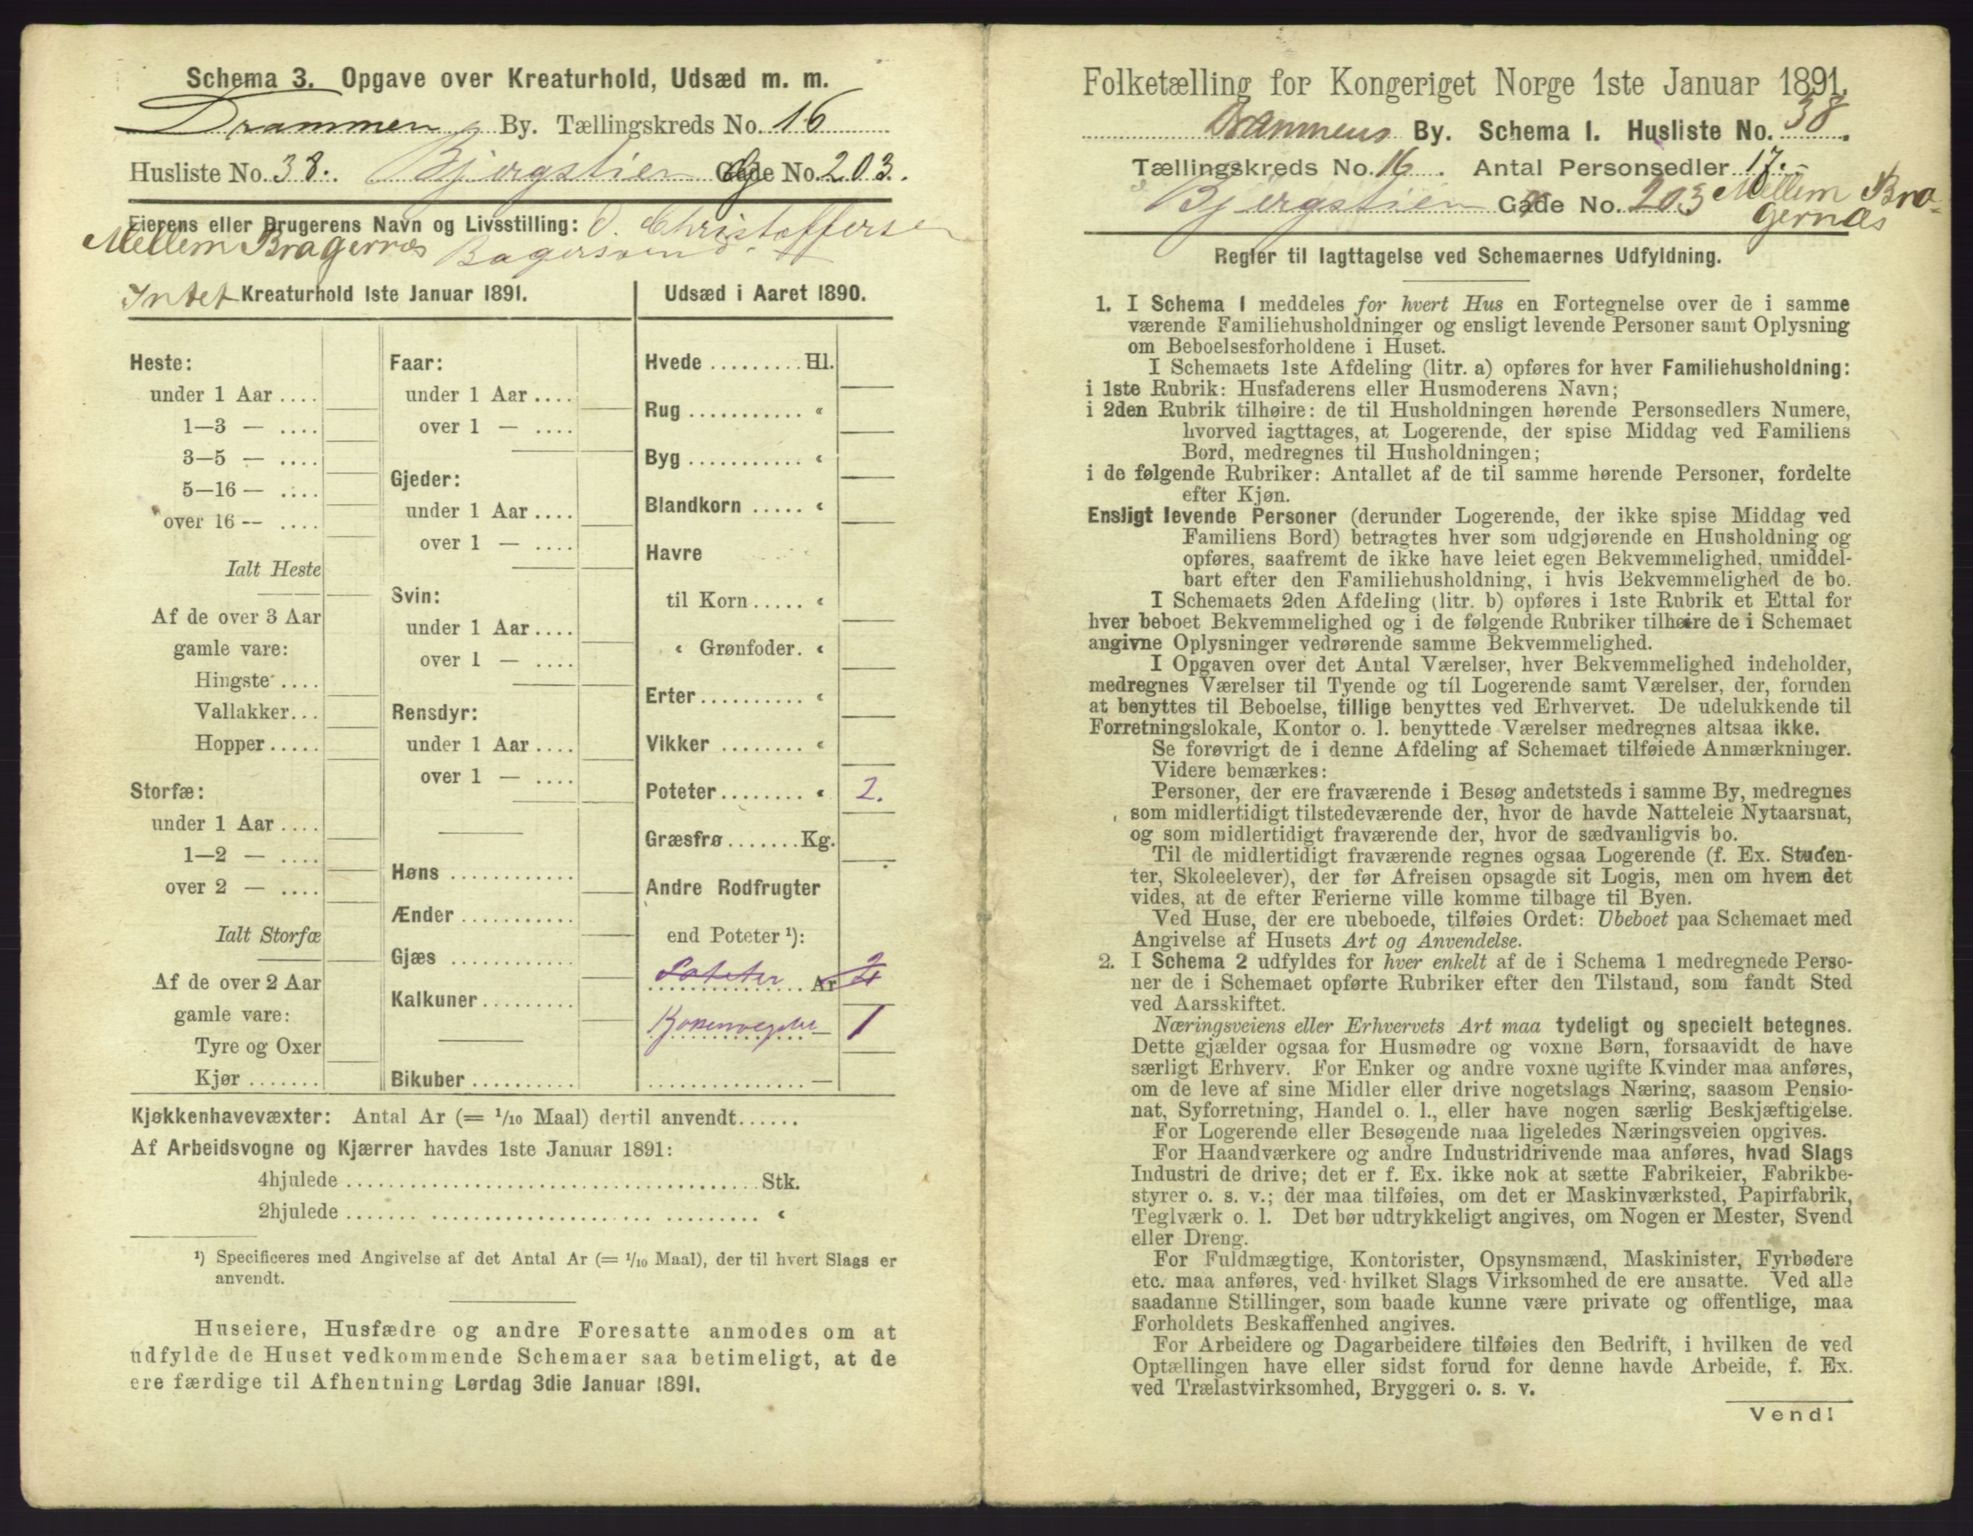 Schema 3. Opgave over Kreaturhold, Udsæd m. m.
Drammen By. Tællingskreds No. 16
Husliste No. 38. Bjergstien Gade No. 203.
Eierens eller Brugerens Navn og Livsstilling: O. Christoffersen
Mellem Bragernæs Bagersvend.
Intet Kreaturhold 1ste Januar 1891.
Heste:
under 1 Aar ....
1—3 — ....
3—5 — ....
5—16 — ....
over 16 — ....
Ialt Heste
Af de over 3 Aar
gamle vare:
Hingste ....
Vallakker...
Hopper .....
Storfæ:
under 1 Aar ....
1—2 — ....
over 2 — ....
Ialt Storfæ
Af de over 2 Aar
gamle vare:
Tyre og Oxer
Kjør .......
Faar:
under 1 Aar ....
over 1 — ....
Gjeder:
under 1 Aar ....
over 1 — ....
Svin:
under 1 Aar....
over 1 — ....
Rensdyr:
under 1 Aar ....
over 1 — ....
Høns ............
Ænder ...........
Gjæs ............
Kalkuner.........
Bikuber ..........
Udsæd i Aaret 1890.
Hvede ......... Hl.
Rug ........... “
Byg ........... “
Blandkorn ..... “
Havre
til Korn ..... “
“ Grønfoder. “
Erter .......... “
Vikker ........ “
Poteter ........ “ 2.
Græsfrø ....... Kg.
Andre Rodfrugter
end Poteter ¹):
Poteter Ar
1
Kjøkkenhavevæxter: Antal Ar (= 1/10 Maal) dertil anvendt......
Af Arbeidsvogne og Kjærrer havdes 1ste Januar 1891:
4hjulede ..................................... Stk.
2hjulede ..................................... “
¹) Specificeres med Angivelse af det Antal Ar (= 1/10 Maal), der til hvert Slags er
anvendt.
Huseiere, Husfædre og andre Foresatte anmodes om at
udfylde de Huset vedkommende Schemaer saa betimeligt, at de
ere færdige til Afhentning Lørdag 3die Januar 1891.
Folketælling for Kongeriget Norge 1ste Januar 1891.
Drammens By. Schema 1. Husliste No. 38.
Tællingskreds No. 16. Antal Personsedler 17.
Bjergstien Gade No. 203 Mellem Bra-
gernæs
Regler til Iagttagelse ved Schemaernes Udfyldning.
1. I Schema 1 meddeles for hvert Hus en Fortegnelse over de i samme
værende Familiehusholdninger og ensligt levende Personer samt Oplysning
om Beboelsesforholdene i Huset.
I Schemaets 1ste Afdeling (litr. a) opføres for hver Familiehusholdning:
i 1ste Rubrik: Husfaderens eller Husmoderens Navn;
i 2den Rubrik tilhøire: de til Husholdningen hørende Personsedlers Numere,
hvorved iagttages, at Logerende, der spise Middag ved Familiens
Bord, medregnes til Husholdningen;
i de følgende Rubriker: Antallet af de til samme hørende Personer, fordelte
efter Kjøn.
Ensligt levende Personer (derunder Logerende, der ikke spise Middag ved
Familiens Bord) betragtes hver som udgjørende en Husholdning og
opføres, saafremt de ikke have leiet egen Bekvemmelighed, umiddel-
bart efter den Familiehusholdning, i hvis Bekvemmelighed de bo.
I Schemaets 2den Afdeling (litr. b) opføres i 1ste Rubrik et Ettal for
hver beboet Bekvemmelighed og i de følgende Rubriker tilhøire de i Schemaet
angivne Oplysninger vedrørende samme Bekvemmelighed.
I Opgaven over det Antal Værelser, hver Bekvemmelighed indeholder,
medregnes Værelser til Tyende og til Logerende samt Værelser, der, foruden
at benyttes til Beboelse, tillige benyttes ved Erhvervet. De udelukkende til
Forretningslokale, Kontor o. l. benyttede Værelser medregnes altsaa ikke.
Se forøvrigt de i denne Afdeling af Schemaet tilføiede Anmærkninger.
Videre bemærkes:
Personer, der ere fraværende i Besøg andetsteds i samme By, medregnes
som midlertidigt tilstedeværende der, hvor de havde Natteleie Nytaarsnat,
og som midlertidigt fraværende der, hvor de sædvanligvis bo.
Til de midlertidigt fraværende regnes ogsaa Logerende (f. Ex. Studen-
ter, Skoleelever), der før Afreisen opsagde sit Logis, men om hvem det
vides, at de efter Ferierne ville komme tilbage til Byen.
Ved Huse, der ere ubeboede, tilføies Ordet: Ubeboet paa Schemaet med
Angivelse af Husets Art og Anvendelse.
2. I Schema 2 udfyldes for hver enkelt af de i Schema 1 medregnede Perso-
ner de i Schemaet opførte Rubriker efter den Tilstand, som fandt Sted
ved Aarsskiftet.
Næringsveiens eller Erhvervets Art maa tydeligt og specielt betegnes.
Dette gjælder ogsaa for Husmødre og voxne Børn, forsaavidt de have
særligt Erhverv. For Enker og andre voxne ugifte Kvinder maa anføres,
om de leve af sine Midler eller drive nogetslags Næring, saasom Pensio-
nat, Syforretning, Handel o. l., eller have nogen særlig Beskjæftigelse.
For Logerende eller Besøgende maa ligeledes Næringsveien opgives.
For Haandværkere og andre Industridrivende maa anføres, hvad Slags
Industri de drive; det er f. Ex. ikke nok at sætte Fabrikeier, Fabrikbe-
styrer o. s. v.; der maa tilføies, om det er Maskinværksted, Papirfabrik,
Teglværk o. l. Det bør udtrykkeligt angives, om Nogen er Mester, Svend
eller Dreng.
For Fuldmægtige, Kontorister, Opsynsmænd, Maskinister, Fyrbødere
etc. maa anføres, ved hvilket Slags Virksomhed de ere ansatte. Ved alle
saadanne Stillinger, som baade kunne være private og offentlige, maa
Forholdets Beskaffenhed angives.
For Arbeidere og Dagarbeidere tilføies den Bedrift, i hvilken de ved
Optællingen have eller sidst forud for denne havde Arbeide, f. Ex.
ved Trælastvirksomhed, Bryggeri o. s. v.
Vend!